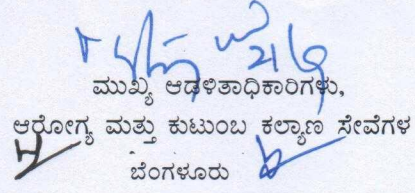 ಮುಖ್ಯ ಆಡಳಿತಾಧಿಕಾರಿಗಳು,
ಆರೋಗ್ಯ ಮತ್ತು ಕುಟುಂಬ ಕಲ್ಯಾಣ ಸೇವೆಗಳ
ಬೆಂಗಳೂರು